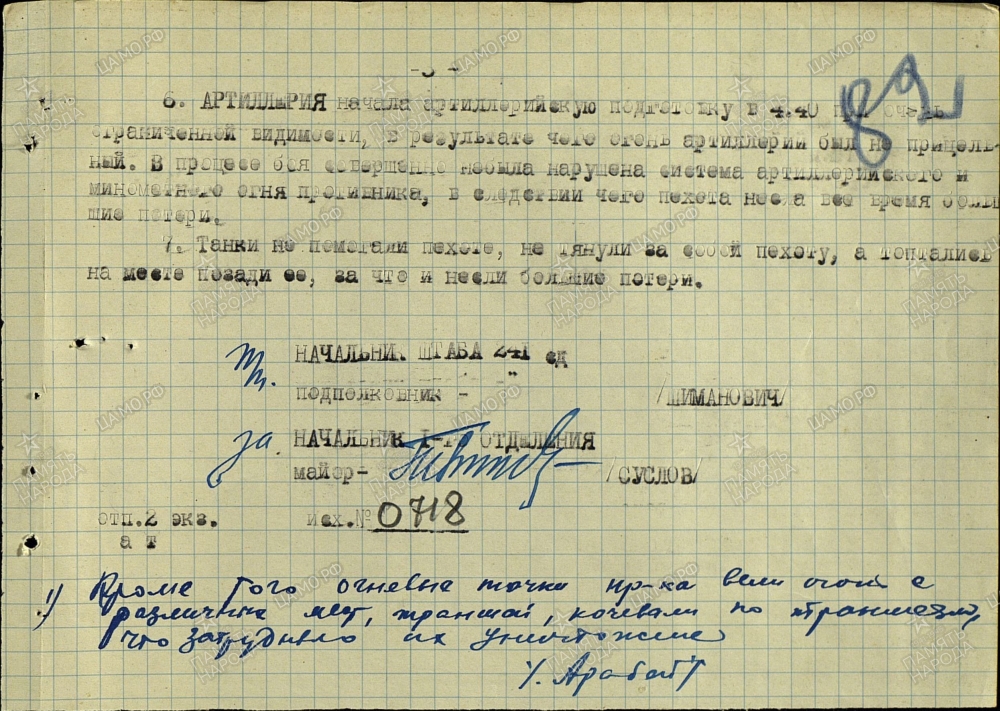 - 3 -
89
6. АРТИЛЛЕРИЯ начала артиллерийскую подготовку в 4.40 при очень
ограниченной видимости, в результате чего огонь артиллерии был не прицель-
ный. В процессе боя совершенно небыла нарушена система артиллерийского и
минометного огня противника, в следствии чего пехота несла все время боль
шие потери.
7. Танки не помогали пехоте, не тянули за собой пехоту, а топтались
на месте позади ее, за что и несли большие потери.
НАЧАЛЬНИК ШТАБА 241 сд
подполковник - /ШИМАНОВИЧ/
за НАЧАЛЬНИК 1-го ОТДЕЛЕНИЯ
майор- /СУСЛОВ/
отп.2 экз. исх.№ 0718
а т
1) Кроме того огневые точки пр-ка вели огонь с
различных мест, траншей, кочевали по траншеям,
что затрудняло их уничтожение